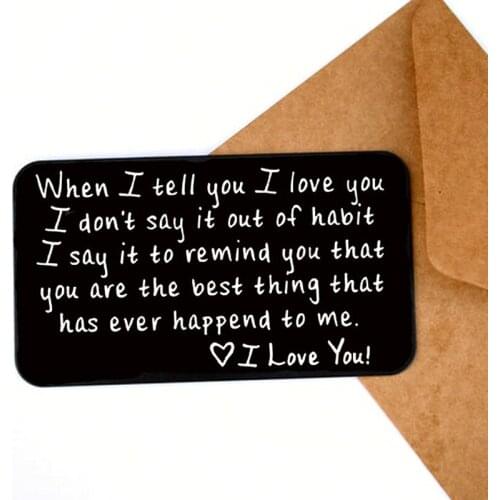 When I tell you I love you
I don't say it out of habit
I say it to remind you that
you are the best thing that
has ever happend to me.
♡ I Love You!